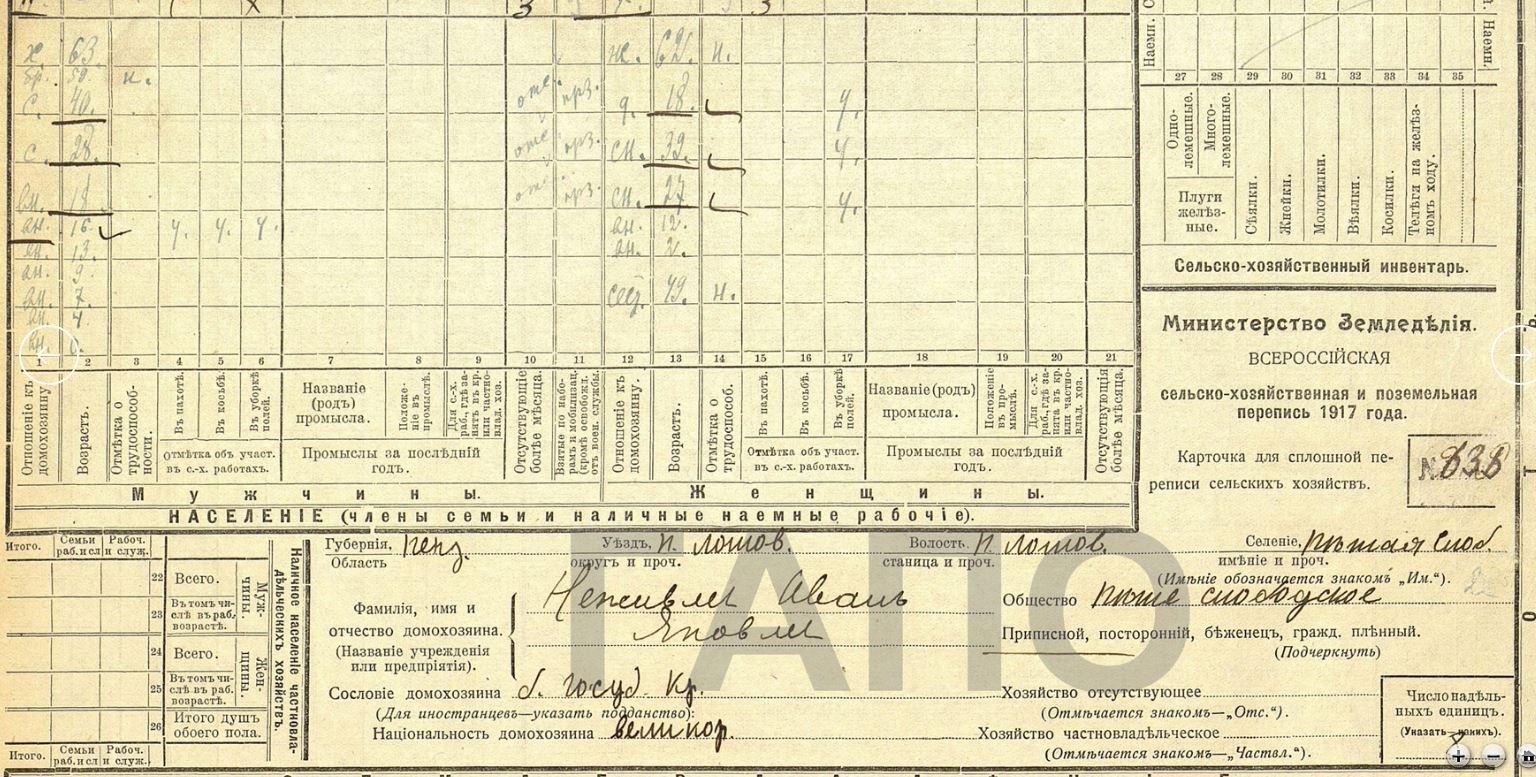 х. 63. ж. 62. н.
бр. 59. н.
с. 40. отс. прз. д. 18. ч.
с. 28. отс. прз. сн. 32. ч.
вн. 18. отс. прз. сн. 27. ч.
вн. 16. ч. ч. ч. вн. 12.
вн. 13. вн. 2.
вн. 9.
вн. 7. сес. 49. н.
вн. 4.
вн.
1 2 3 4 5 6 7 8 9 10 11 12 13 14 15 16 17 18 19 20 21
Отношеніе къ домохозяину.
Возрастъ.
Отмѣтка о трудоспособ-ности.
Въ пахотѣ.
Въ косьбѣ.
Въ уборкѣ полей.
Отмѣтка объ участ. въ с.-х. работахъ.
Названіе (родъ) промысла.
Положе-ніе въ промыслѣ.
Для с.-х. раб., гдѣ за-нятъ въ кр. или частно-влад. хоз.
Промыслы за послѣдній годъ.
Отсутствующіе болѣе мѣсяца.
Взятые по набо-рамъ и мобилизац. (кромѣ освобожд. отъ воен. службы.
Отношеніе къ домохозяину.
Возрастъ.
Отмѣтка о трудоспособ.
Въ пахотѣ.
Въ косьбѣ.
Въ уборкѣ полей.
Отмѣтка объ участ. въ с.-х. работахъ.
Названіе (родъ) промысла.
Положеніе въ про-мыслѣ.
Для с.-х. раб., гдѣ за-нята въ кр. или частно-влад. хоз.
Промыслы за послѣдній годъ.
Отсутствующія болѣе мѣсяца.
Мужчины. Женщины.
НАСЕЛЕНІЕ (члены семьи и наличные наемные рабочіе).
Наемн. Наемн.
27 28 29 30 31 32 33 34 35
Одно-лемешные.
Много-лемешные.
Плуги желѣз-ные.
Сѣялки.
Жнейки.
Молотилки.
Вѣялки.
Косилки.
Телѣга на желѣз-номъ ходу.
Сельско-хозяйственный инвентарь.
Министерство Земледѣлія.
ВСЕРОССІЙСКАЯ
сельско-хозяйственная и поземельная
перепись 1917 года.
Карточка для сплошной пе-
реписи сельскихъ хозяйствъ.
№ 638
Итого. Семьи раб. и сл. Рабоч. и служ.
22 Всего.
23 Въ томъ чи-слѣ въ раб. возрастѣ.
Муж-чины.
24 Всего.
25 Въ томъ чи-слѣ въ раб. возрастѣ.
Жен-щины.
26 Итого душъ обоего пола.
Итого. Семьи раб. и сл. Рабоч. и служ.
Наличное населеніе частновла-дѣльческихъ хозяйствъ.
Губернія, Пенз. Уѣздъ, Н. Ломов. Волость. Н. Ломов. Селеніе,
Область округъ и проч. станица и проч. имѣніе и проч.
(Имѣніе обозначается знакомъ „Им.“).
Фамилія, имя и
отчество домохозяина.
(Названіе учрежденія
или предпріятія).
Иванъ
Яковлев
Общество
Приписной, посторонній, бѣженецъ, гражд. плѣнный.
(Подчеркнуть)
Сословіе домохозяина б. госуд. кр.
(Для иностранцевъ—указать подданство):
Національность домохозяина великор.
Хозяйство отсутствующее
(Отмѣчается знакомъ—„Отс.“).
Хозяйство частновладѣльческое
(Отмѣчается знакомъ—„Частвл.“).
Число надѣль-
ныхъ единицъ.
(Указать какихъ).
ГАПО